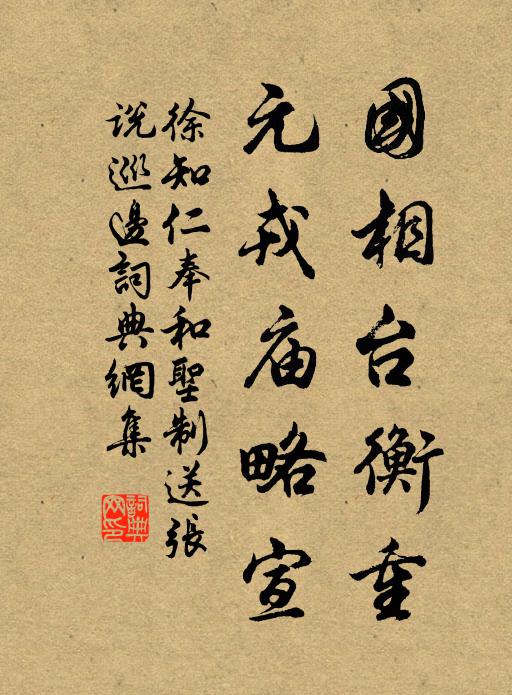 國相台衡重
元戎庙略宣
徐知仁奉和聖制送張
説巡邊詞典網集
詞典網印